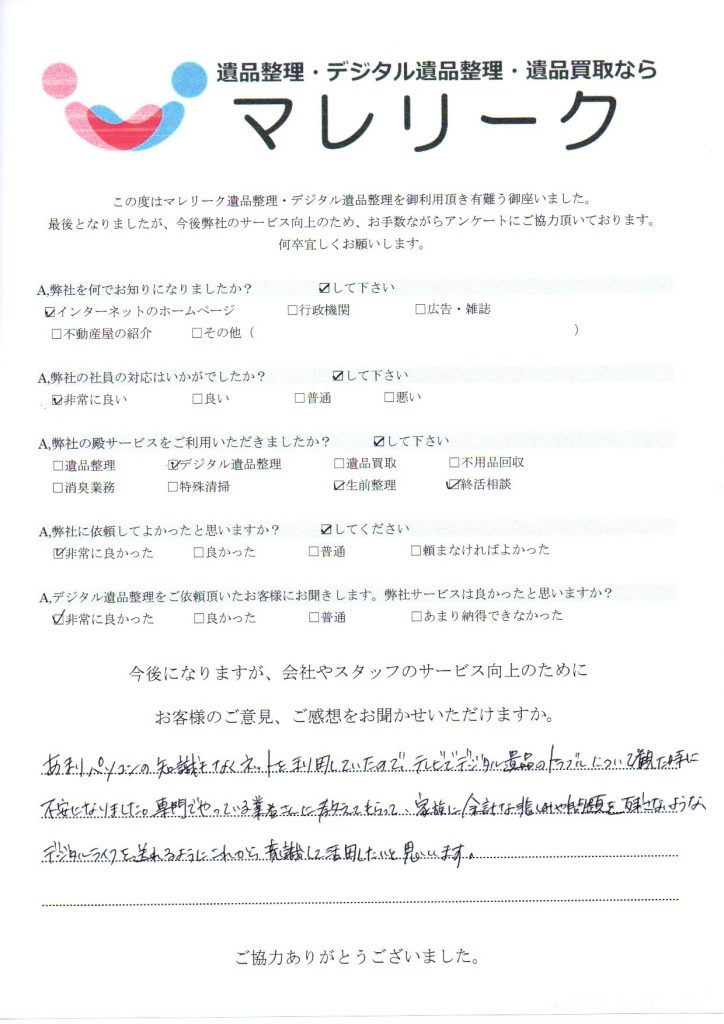 遺品整理・デジタル遺品整理・遺品買取なら
マレリーク
この度はマレリーク遺品整理・デジタル遺品整理を御利用頂き有難う御座いました。
最後となりましたが、今後弊社のサービス向上のため、お手数ながらアンケートにご協力頂いております。
何卒宜しくお願いします。
A,弊社を何でお知りになりましたか？ ☑して下さい
☑インターネットのホームページ □行政機関 □広告・雑誌
□不動産屋の紹介 □その他（ ）
A,弊社の社員の対応はいかがでしたか？ ☑して下さい
☑非常に良い □良い □普通 □悪い
A,弊社の殿サービスをご利用いただきましたか？ ☑して下さい
□遺品整理 ☑デジタル遺品整理 □遺品買取 □不用品回収
□消臭業務 □特殊清掃 ☑生前整理 ☑終活相談
A,弊社に依頼してよかったと思いますか？ ☑してください
☑非常に良かった □良かった □普通 □頼まなければよかった
A,デジタル遺品整理をご依頼頂いたお客様にお聞きします。弊社サービスは良かったと思いますか？
☑非常に良かった □良かった □普通 □あまり納得できなかった
今後になりますが、会社やスタッフのサービス向上のために
お客様のご意見、ご感想をお聞かせいただけますか。
あまりパソコンの知識もなくネットを利用していたので、テレビでデジタル遺品のトラブルについて観た時に
不安になりました。専門でやっている業者さんに教えてもらって、家族に余計な悲しみや問題を残さないような
デジタルライフを送れるようにこれから意識して活用したいと思います。
ご協力ありがとうございました。